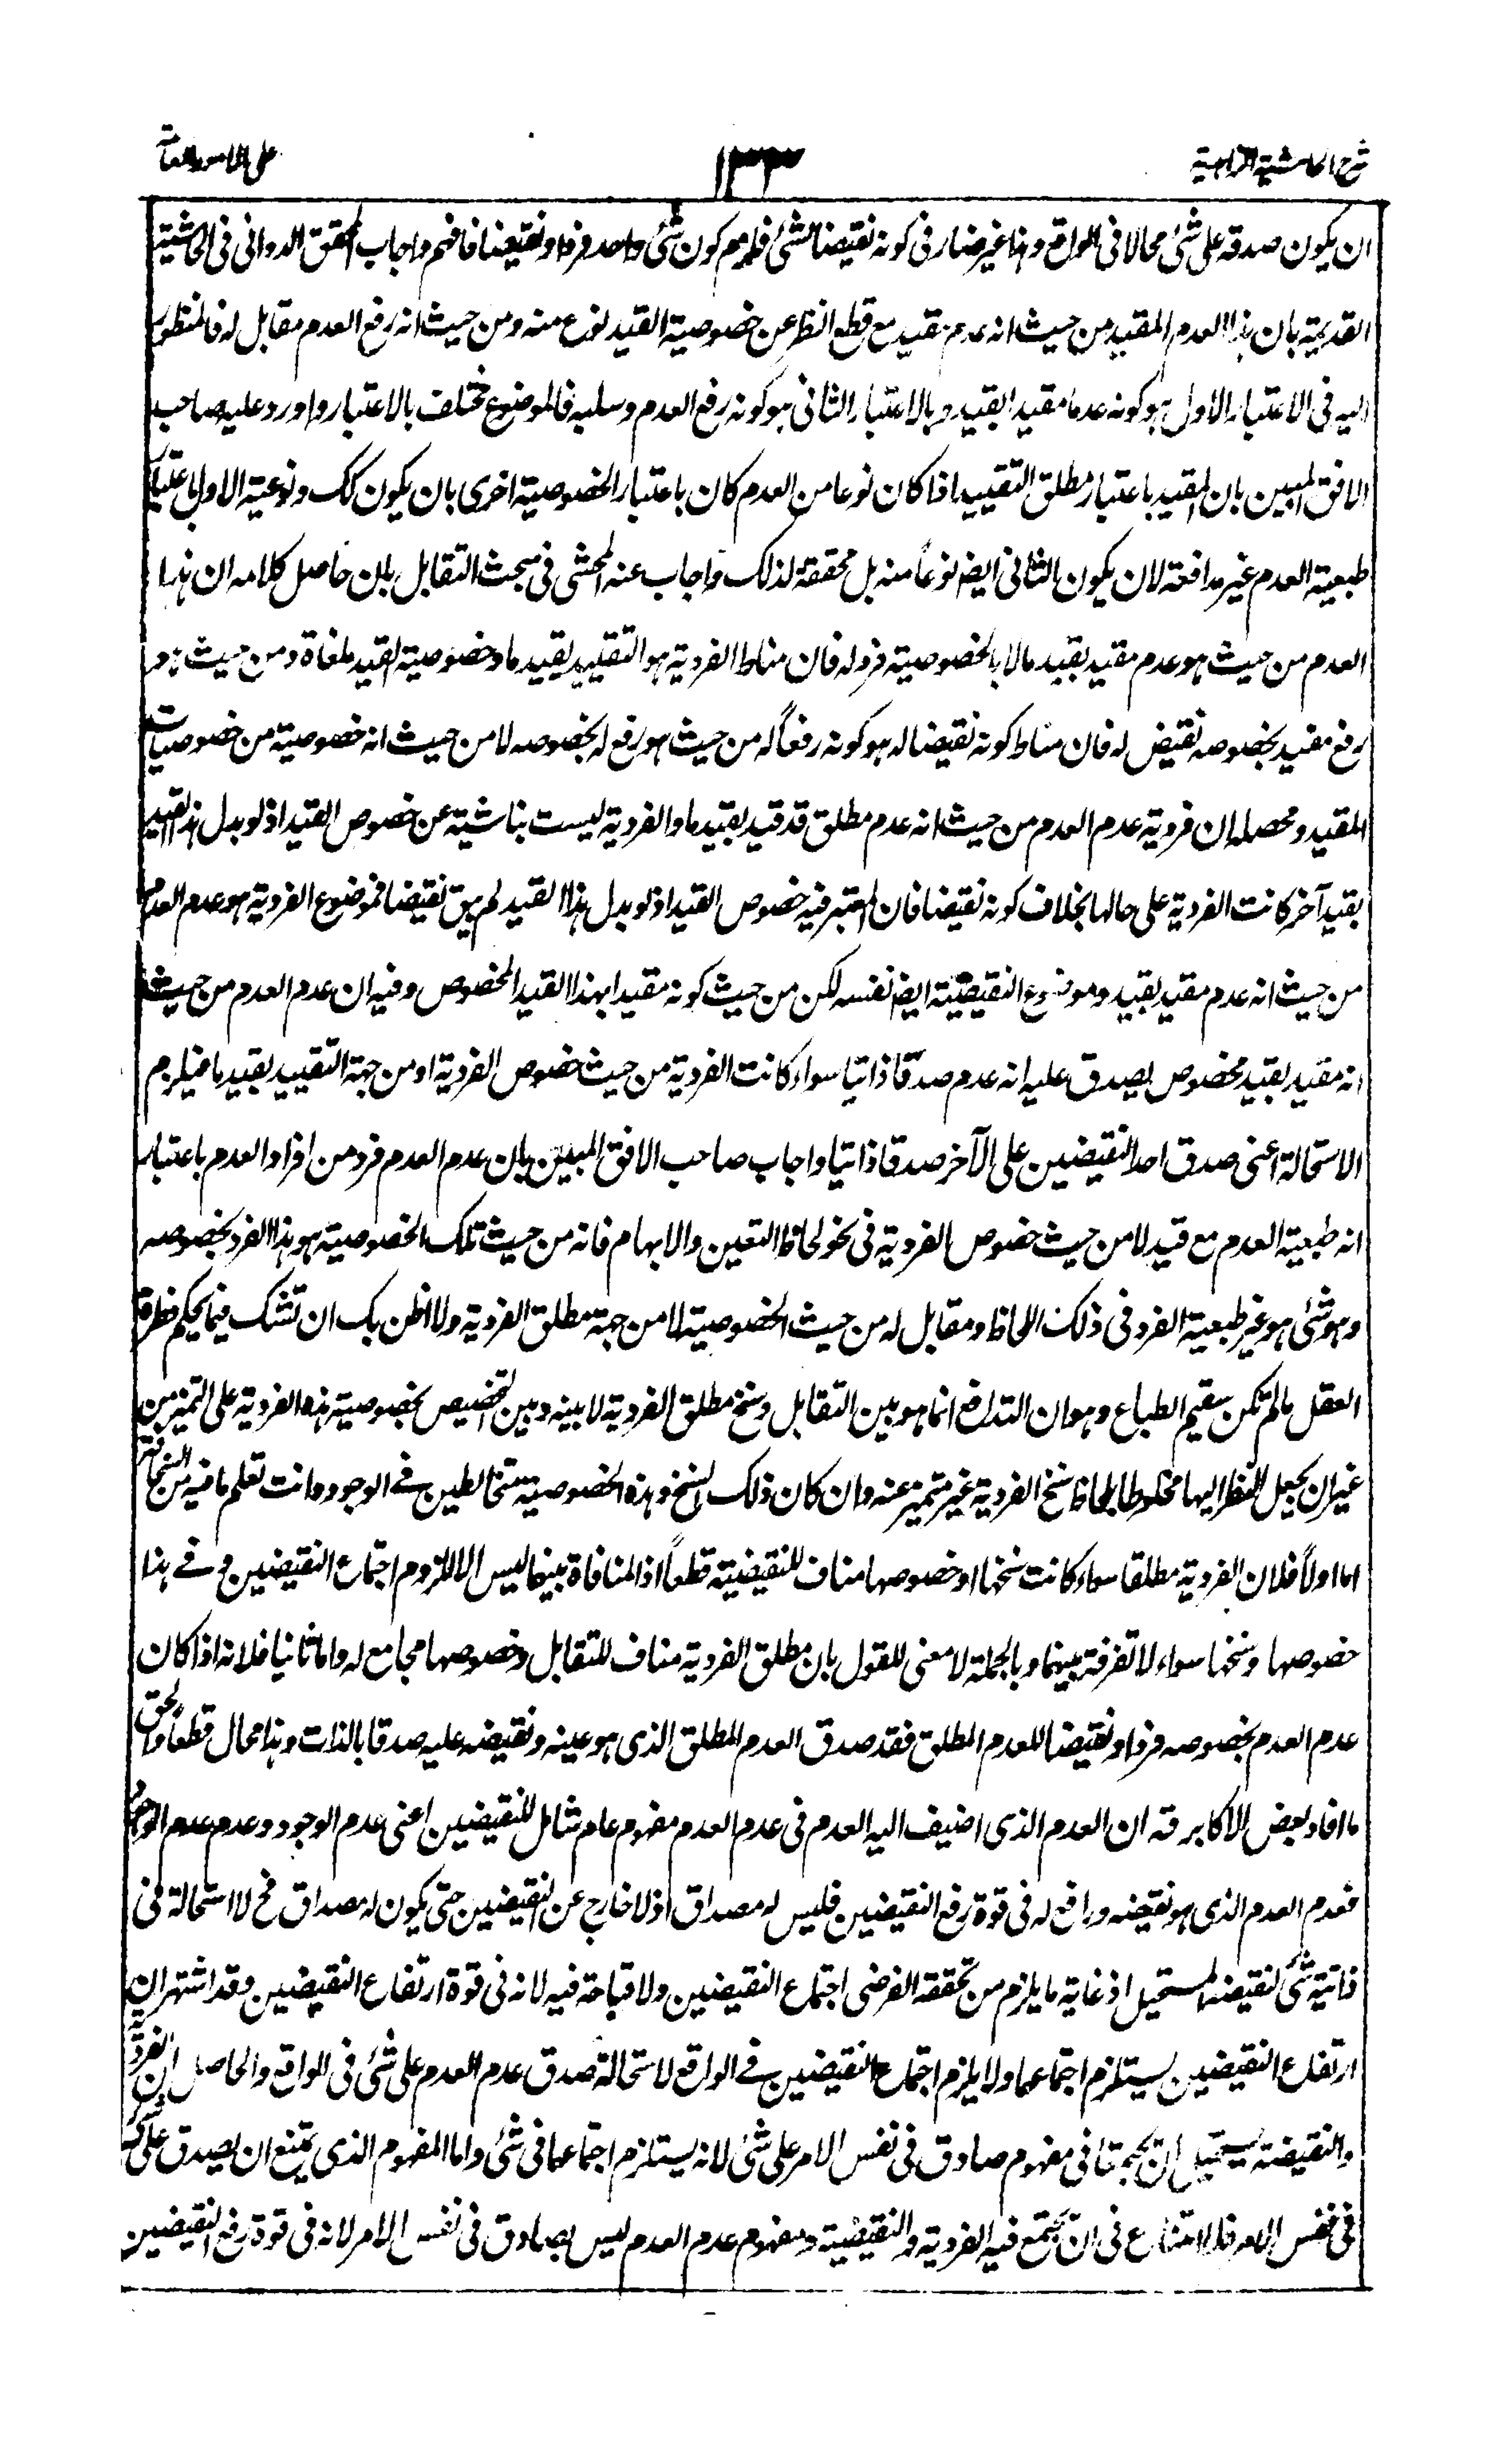 شرح الحاشية الزاهدية
١٣٣
على الامور العامة
ان يكون صدقه على شئ محالا فى الواقع وهذا غير ضار فى كونه نقيضا لشئ فلم يلزم كون شئ واحد فردا ونقيضا فافهم واجاب المحقق الدوانى فى الحاشية
القديمة بان هذا العدم المقيد من حيث انه عدم مقيد مع قطع النظر عن خصوصية القيد نوع منه ومن حيث انه رفع العدم مقابل له فالمنظور
اليه فى الاعتبار الاول هو كونه عدما مقيدا بقيد وبالاعتبار الثانى هو كونه رفع العدم وسلبه فالموضوع مختلف بالاعتبار واورد عليه صاحب
الافق المبين بان المقيد باعتبار مطلق التقييد اذا كان نوعا من العدم كان باعتبار الخصوصية احرى بان يكون كك ونوعية الاول باعتبار
طبعية العدم غير مدافعة لان يكون الثانى ايضا نوعاً منه بل محققة لذلك واجاب عنه المحشى فى مبحث التقابل بان حاصل كلامه ان هذا
العدم من حيث هو عدم مقيد بقيد ما لا بالخصوصية فرد له فان مناط الفردية هو التقييد بقيد ما وخصوصية القيد ملغاة ومن حيث هو
رفع مقيد بخصوصه نقيض له فان مناط كونه نقيضا له هو كونه رفعاً له من حيث هو رفع له بخصوصه لا من حيث انه خصوصية من خصوصيات
المقيد ومحصله ان فردية عدم العدم من حيث انه عدم مطلق قد قيد بقيد ما والفردية ليست بناشية عن خصوص القيد اذ لو بدل هذا القيد
بقيد آخر كانت الفردية على حالها بخلاف كونه نقيضا فان المعتبر فيه خصوص القيد اذ لو بدل هذا القيد لم يبق نقيضا فموضوع الفردية هو عدم العدم
من حيث انه عدم مقيد بقيد وموضوع النقيضية ايضا نفسه لكن من حيث كونه مقيدا بهذا القيد المخصوص وفيه ان عدم العدم من حيث
انه مقيد بقيد مخصوص يصدق عليه انه عدم صدقاً ذاتيا سواء كانت الفردية من حيث خصوص الفردية او من جهة التقييد بقيد ما فيلزم
الاستحالة اعنى صدق احد النقيضين على الآخر صدقا ذاتيا واجاب صاحب الافق المبين بان عدم العدم فرد من افراد العدم باعتبار
انه طبعية العدم مع قيد لا من حيث خصوص الفردية فى نحو لحاظ التعين والابهام فانه من حيث تلك الخصوصية هو هذا الفرد بخصوصه
وهو شئ هو غير طبعية الفرد فى ذلك اللحاظ ومقابل له من حيث الخصوصية لا من جهة مطلق الفردية ولا اظن بك ان تشك فيما يحكم فطرة
العقل ما لم تكن سقيم الطباع وهو ان التدافع انما هو بين التقابل وسنخ مطلق الفردية لا بينه وبين التخصيص بخصوصية هذه الفردية على التميز من
غير ان يجعل النظر اليها مخلوطا بلحاظ سنخ الفردية غير متميز عنه وان كان ذلك السنخ وهذه الخصوصية متخالطين فى الوجود وانت تعلم ما فيه من السخافة
اما اولاً فلان الفردية مطلقا سواء كانت سنخها او خصوصها مناف للنقيضية قطعاً اذ المنافاة بينهما ليس الا للزوم اجتماع النقيضين وفى هذا
خصوصها وسنخها سواء لا تفرقة بينهما وبالجملة لا معنى للقول بان مطلق الفردية مناف للتقابل وخصوصها مجامع له واما ثانيا فلانه اذا كان
عدم العدم بخصوصه فردا ونقيضا للعدم المطلق فقد صدق العدم المطلق الذى هو عينه ونقيضه عليه صدقا بالذات وهذا محال قطعاً والحق
ما افاد بعض الاكابر قه ان العدم الذى اضيف اليه العدم فى عدم العدم مفهوم عام شامل للنقيضين اعنى عدم الوجود وعدم عدم الوجود
فعدم العدم الذى هو نقيضه ورافع له فى قوة رفع النقيضين فليس له مصداق اذ لا خارج عن النقيضين حتى يكون له مصداق فح لا استحالة فى
ذاتية شئ لنقيضه المستحيل اذ غاية ما يلزم من تحققه الفرضى اجتماع النقيضين ولا قباحة فيه لانه فى قوة ارتفاع النقيضين وقد اشتهر ان
ارتفاع النقيضين يستلزم اجتماعهما ولا يلزم اجتماع النقيضين فى الواقع لاستحالة صدق عدم العدم على شئ فى الواقع والحاصل ان الفردية
والنقيضة يستحيل ان تجتمعا فى مفهوم صادق فى نفس الامر على شئ لانه يستلزم اجتماعهما فى شئ واما المفهوم الذى يمتنع ان يصدق على شئ
فى نفس الامر فلا امتناع فى ان تجتمع فيه الفردية والنقيضية ومفهوم عدم العدم ليس بصادق فى نفس الامر لانه فى قوة رفع النقيضين